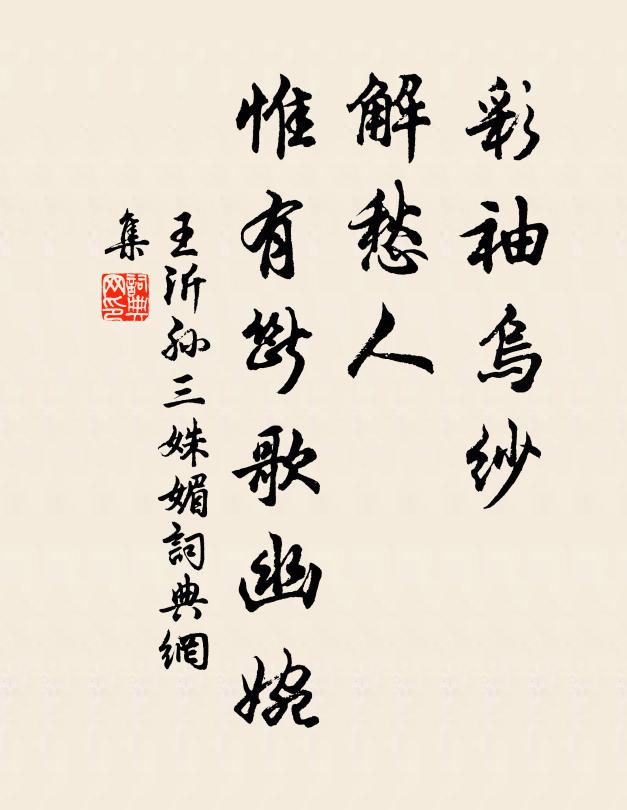 彩袖烏紗
解愁人
惟有斷歌幽婉
王沂孙三姝媚詞典網
集
詞典
网印